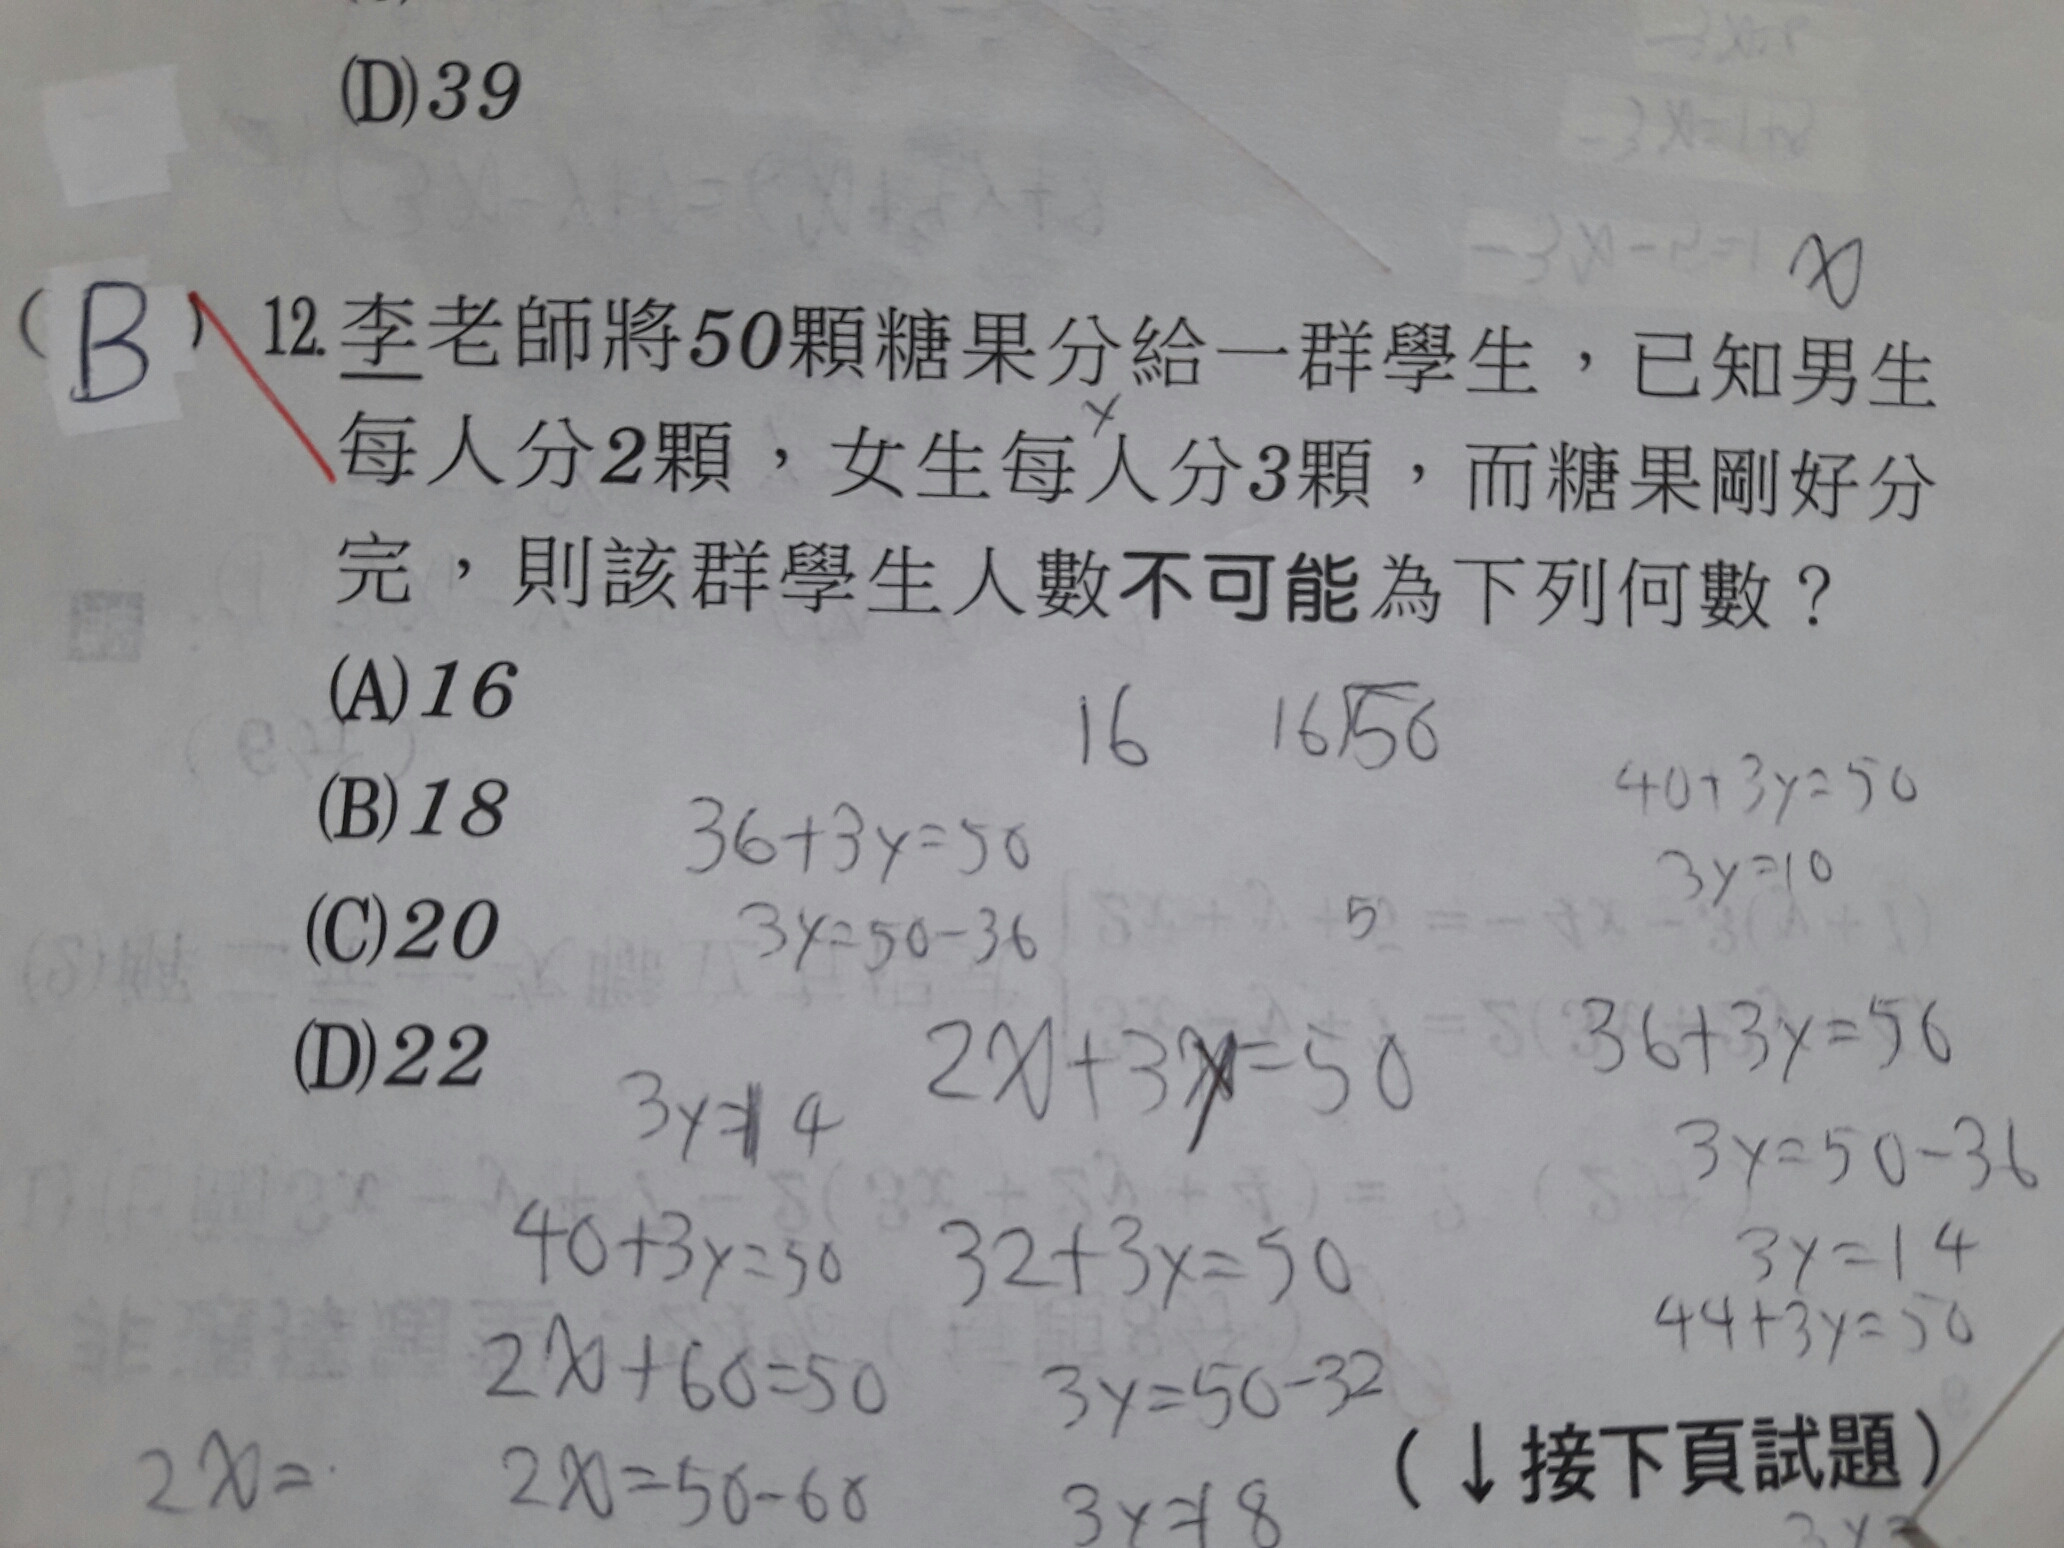 (D)39
x
( B ) 12.李老師將50顆糖果分給一群學生，已知男生
y
每人分2顆，女生每人分3顆，而糖果剛好分
完，則該群學生人數不可能為下列何數？
(A)16
16 16)50
40+3y=50
(B)18
36+3y=50
3y=10
(C)20
3y=50-36
5
(D)22
2x+3y=50
36+3y=50
3y=14
3y=50-36
40+3y=50
32+3y=50
3y=14
44+3y=50
2x+60=50
3y=50-32
(↓接下頁試題)
2x=
2x=50-60
3y=18
3y=